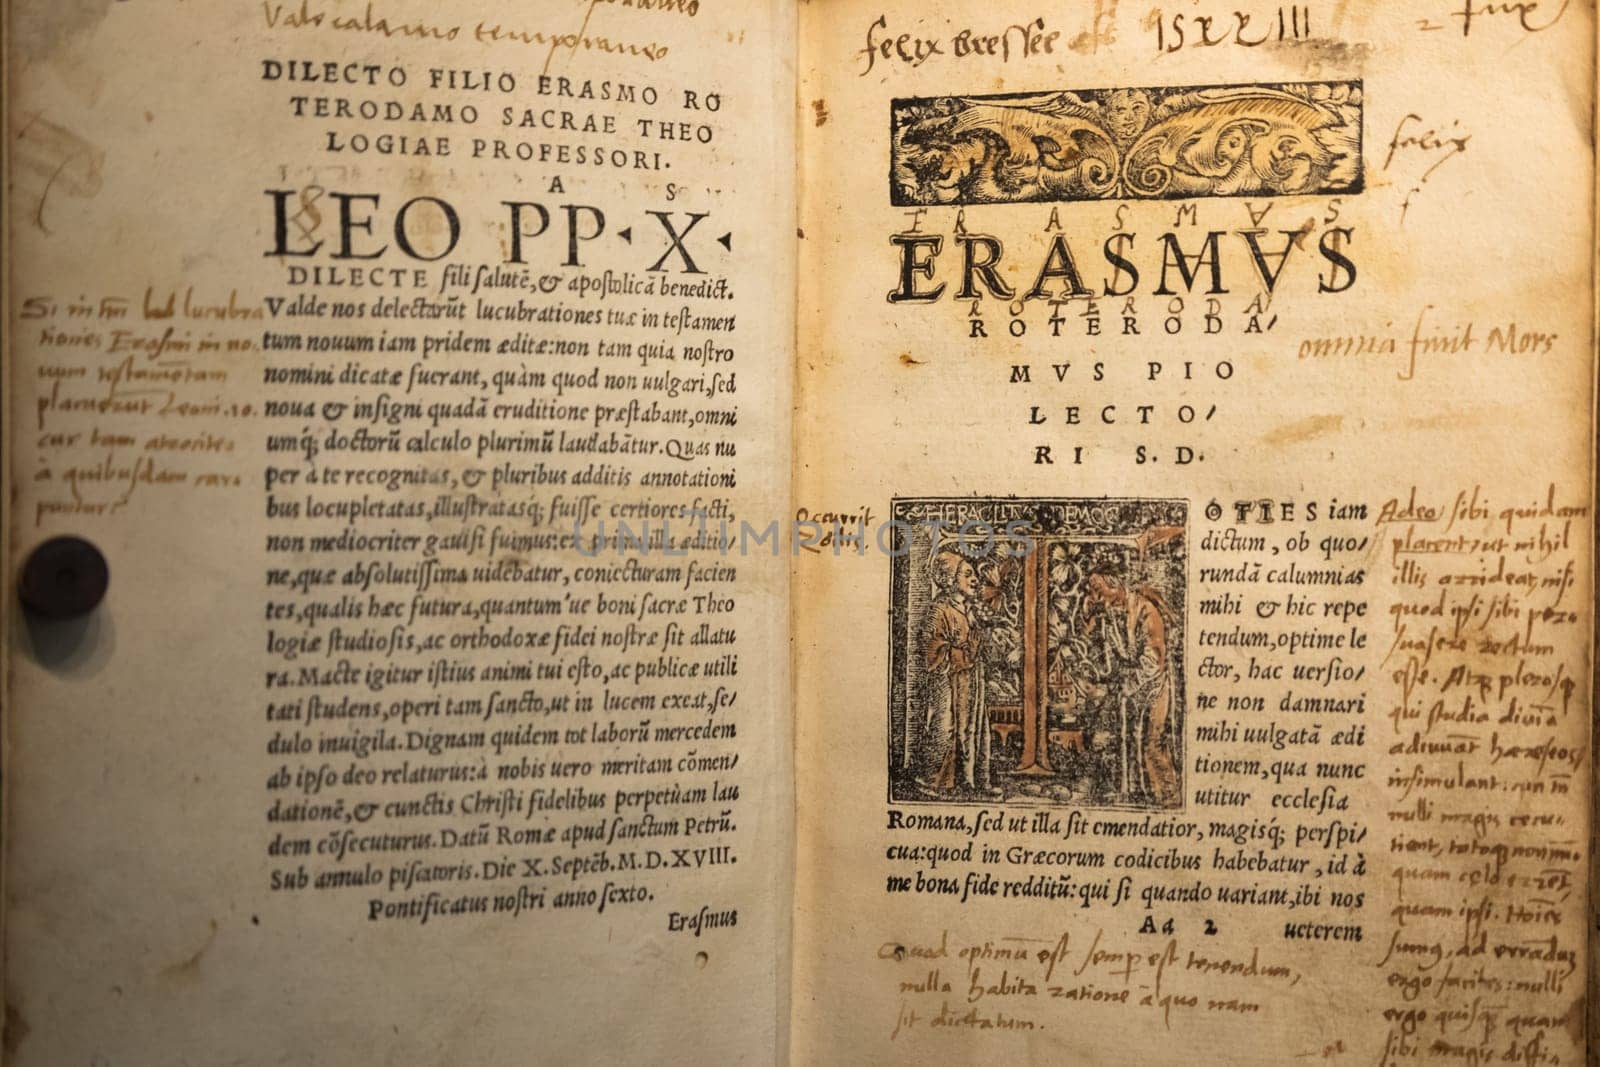 Vale calamo temporaneo
DILECTO FILIO ERASMO RO
TERODAMO SACRAE THEO
LOGIAE PROFESSORI.
A S
LEO PP. X.
DILECTE fili salutē, & apostolicā benedict.
Valde nos delectarūt lucubrationes tuæ in testamen
tum nouum iam pridem æditæ: non tam quia nostro
nomini dicatæ fuerant, quàm quod non uulgari, sed
noua & insigni quadā eruditione præstabant, omni
umq; doctorū calculo plurimū laudabātur. Quas nu
per à te recognitas, & pluribus additis annotationi
bus locupletatas, illustratasq; fuisse certiores facti,
non mediocriter gauisi fuimus: ex prima illa æditio/
ne, quæ absolutissima uidebatur, coniecturam facien
tes, qualis hæc futura, quantum'ue boni sacræ Theo
logiæ studiosis, ac orthodoxæ fidei nostræ sit allatu
ra. Macte igitur istius animi tui esto, ac publicæ utili
tati studens, operi tam sancto, ut in lucem exeat, se/
dulo inuigila. Dignam quidem tot laborū mercedem
ab ipso deo relaturus: à nobis uero meritam cōmen/
dationē, & cunctis Christi fidelibus perpetùam lau
dem cōsecuturus. Datū Romæ apud sanctum Petrū.
Sub annulo piscatoris. Die X. Septēb. M.D.XVIII.
Pontificatus nostri anno sexto.
Erasmus
lucubra
tiones Erasmi in no
à quibusdam
felix
felix
ERASMVS
ERASMVS
ROTERODA
ROTERODA/
MVS PIO
LECTO/
RI S. D.
omnia finit Mors
HERACLITVS DEMOC
T
OTIES iam
dictum, ob quo/
rundā calumnias
mihi & hic repe
tendum, optime le
ctor, hac uersio/
ne non damnari
mihi uulgatā ædi
tionem, qua nunc
utitur ecclesia
Romana, sed ut illa sit emendatior, magisq; perspi/
cua: quod in Græcorum codicibus habebatur, id à
me bona fide redditū: qui si quando uariant, ibi nos
Aa 2 ueterem
Occurrit
Quod optimū est semp est tenendum,
nulla habita ratione à quo nam
sit dictatum.
Adeo sibi quidam
placent, ut nihil
illis arrideat, nisi
quod ipsi sibi
rectum
esse.
qui studia diuīa
adiuuāt
insimulant:
nulli magis
quam
quam ipsi.
ad
ergo nulli
ergo quam
sibi magis
UNLIMPHOTOS